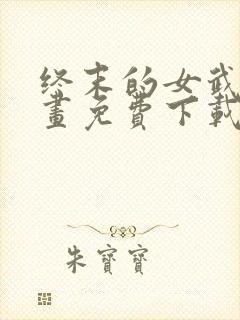 终末的女武
畫免費下載
朱寶寶